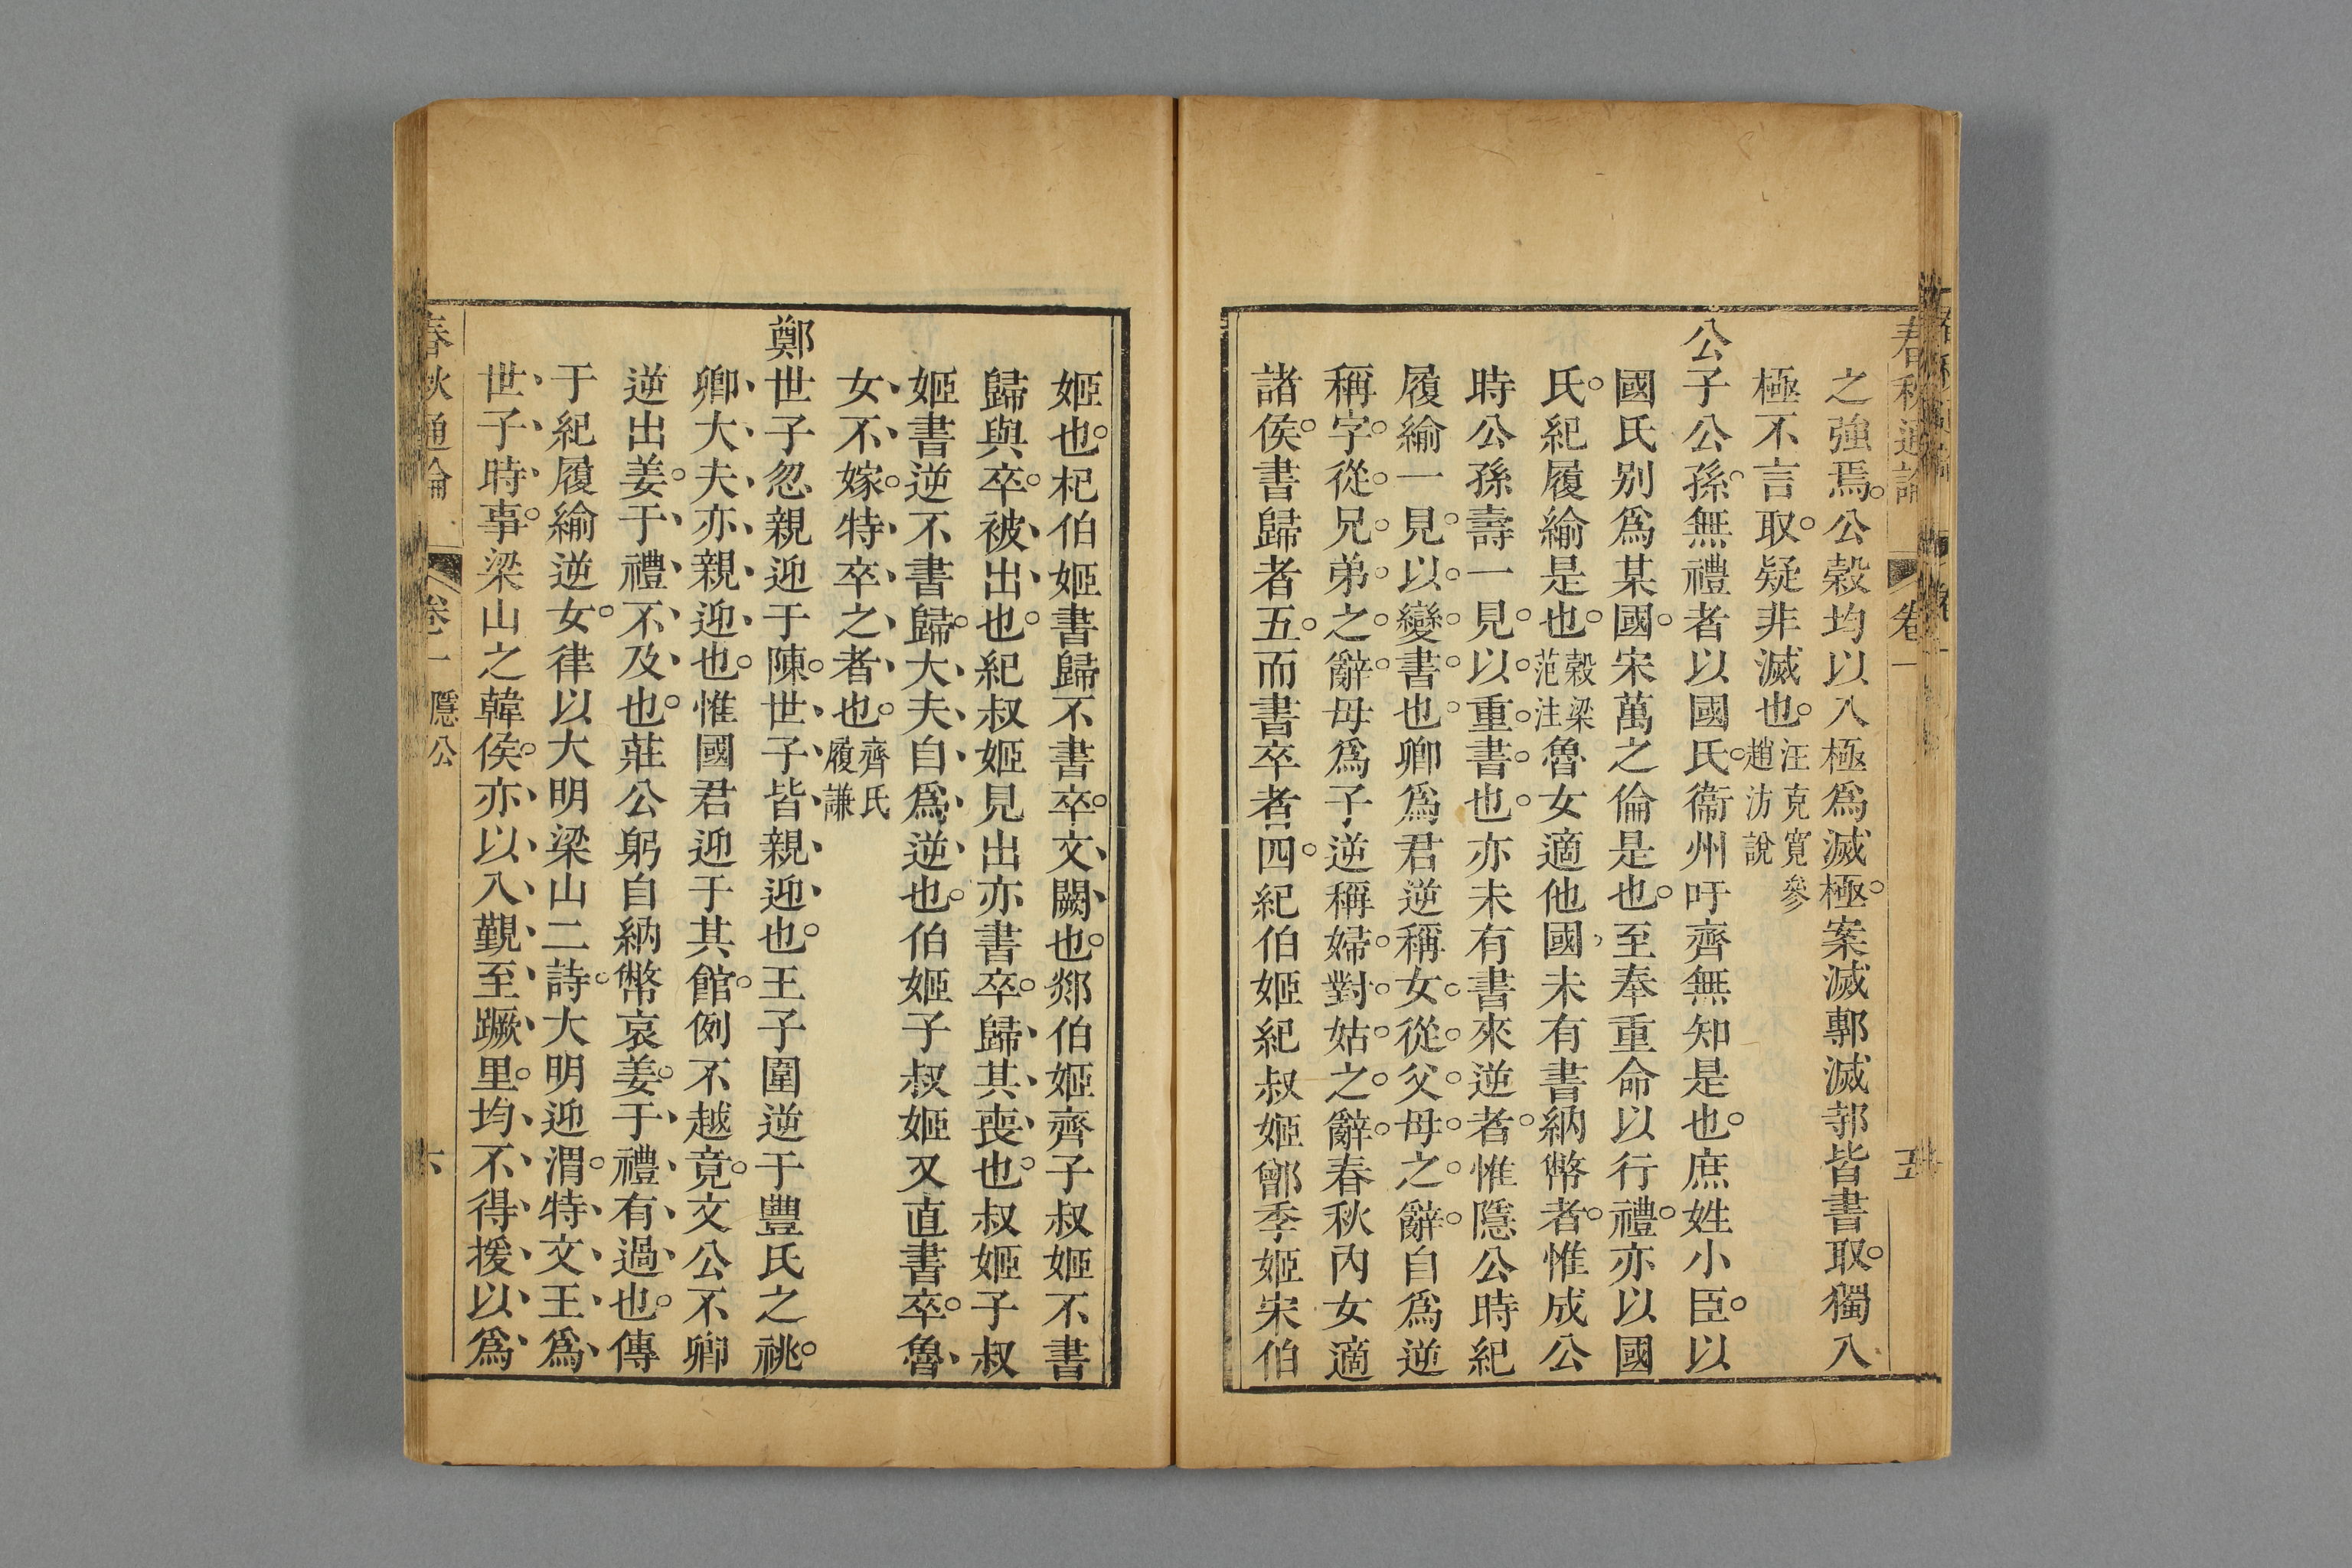 春秋通論 卷一 五
之強焉公穀均以入極爲滅極案滅鄟滅邿皆書取獨入
極不言取疑非滅也汪克寬參趙汸說
公子公孫無禮者以國氏衞州吁齊無知是也庶姓小臣以
國氏别爲某國宋萬之倫是也至奉重命以行禮亦以國
氏紀履緰是也穀梁范注魯女適他國未有書納幣者惟成公
時公孫壽一見以重書也亦未有書來逆者惟隱公時紀
履緰一見以變書也卿爲君逆稱女從父母之辭自爲逆
稱字從兄弟之辭母爲子逆稱婦對姑之辭春秋內女適
諸侯書歸者五而書卒者四紀伯姬紀叔姬鄫季姬宋伯
姬也杞伯姬書歸不書卒文闕也郯伯姬齊子叔姬不書
歸與卒被出也紀叔姬見出亦書卒歸其喪也叔姬子叔
姬書逆不書歸大夫自爲逆也伯姬子叔姬又直書卒魯
女不嫁特卒之者也齊氏履謙
鄭世子忽親迎于陳世子皆親迎也王子圍逆于豐氏之祧
卿大夫亦親迎也惟國君迎于其館例不越竟文公不卿
逆出姜于禮不及也莊公躬自納幣哀姜于禮有過也傳
于紀履緰逆女律以大明梁山二詩大明迎渭特文王爲
世子時事梁山之韓侯亦以入覲至蹶里均不得援以爲
春秋通論 卷一 隱公 六